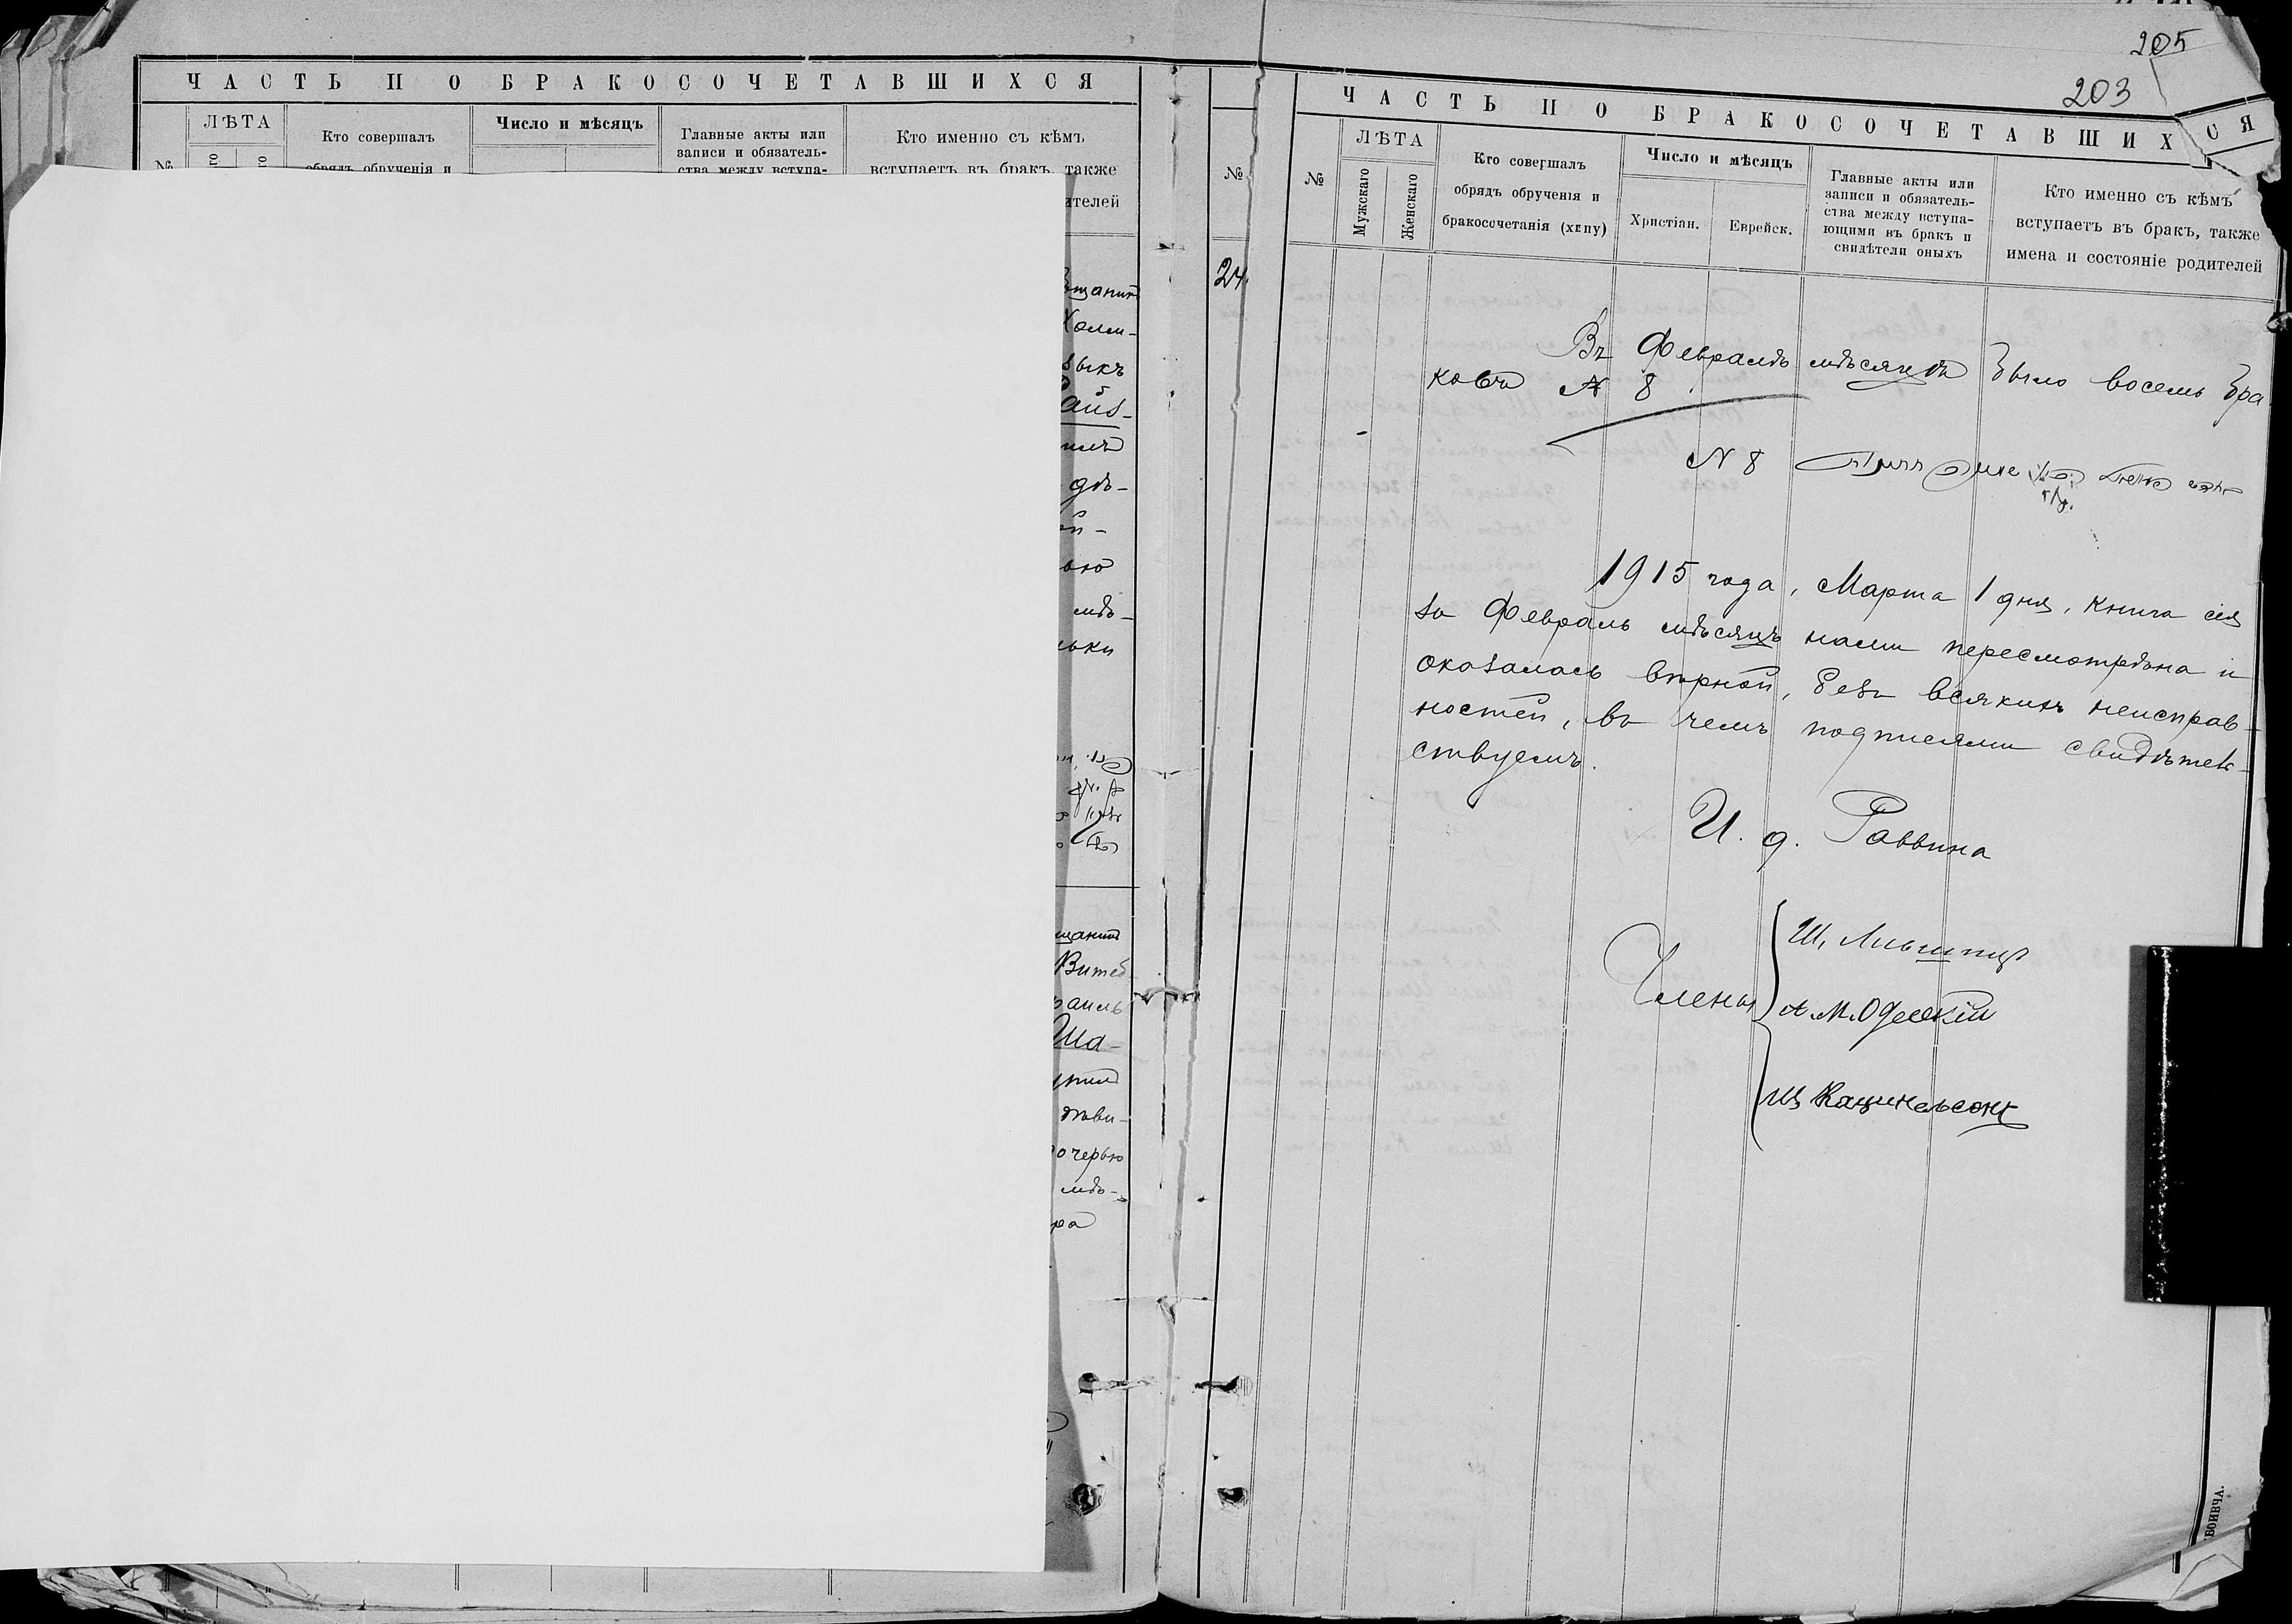 ЧАСТЬ II О БРАКОСОЧЕТАВШИХСЯ
№
ЛѢТА
Кто совершалъ
обрядъ обрученія и
Число и мѣсяцъ
Главные акты или
записи и обязатель-
ства между вступа-
Кто именно съ кѣмъ
вступаетъ въ бракъ, также
ителей
Холм-
выкъ
дѣ-
ою
мѣ-
щанинъ
Витеб
раиль
Ша-
дѣви-
очерью
мѣ-
ра
№
24
205
203
ЧАСТЬ II О БРАКОСОЧЕТАВШИХСЯ
№
ЛѢТА
Мужскаго
Женскаго
Кто совершалъ
обрядъ обрученія и
бракосочетанія (хупу)
Число и мѣсяцъ
Христіан.
Еврейск.
Главные акты или
записи и обязатель-
ства между вступа-
ющими въ бракъ и
свидѣтели оныхъ
Кто именно съ кѣмъ
вступаетъ въ бракъ, также
имена и состояніе родителей
Въ Февралѣ мѣсяцѣ было восемь бра
ковъ № 8
№ 8
1915 года, Марта 1 дня, книга сія
за Февраль мѣсяцъ нами пересмотрѣна и
оказалась вѣрной, безъ всякихъ неисправ-
ностей, въ чемъ подписями свидѣтель-
ствуемъ.
И. д. Раввина
Члены
Ш. Лившицъ
А. М. Одесскій
Ш Кацнельсонъ
БОИВЧА.